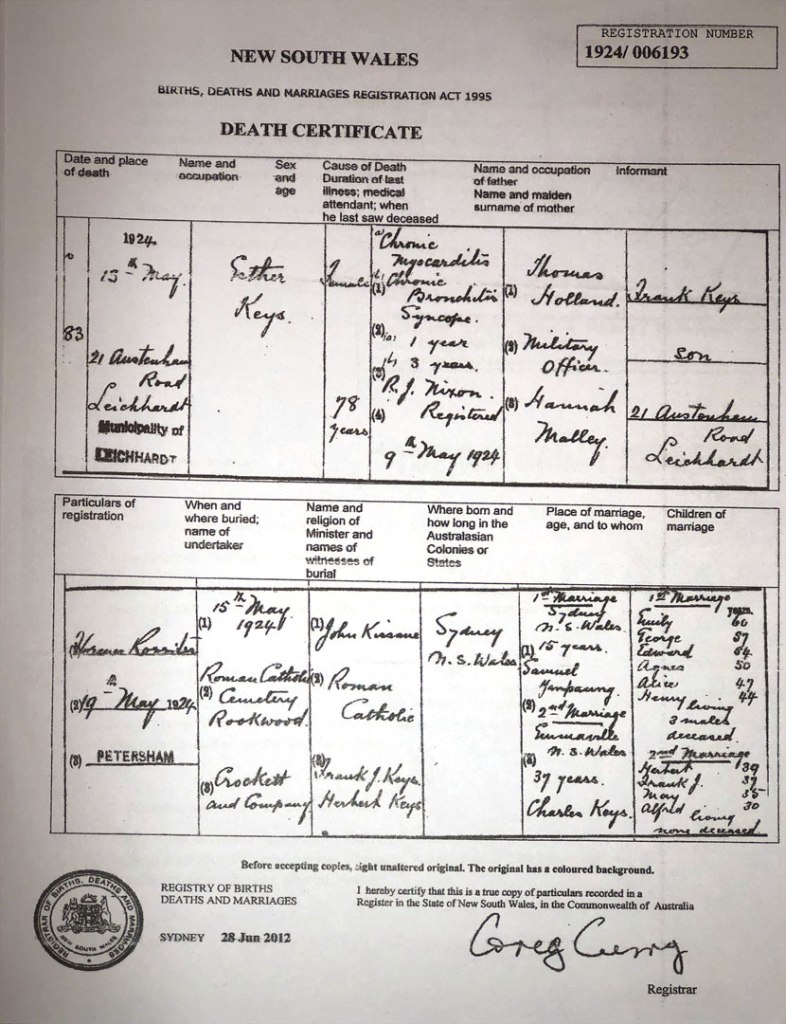 REGISTRATION NUMBER
1924/ 006193
NEW SOUTH WALES
BIRTHS, DEATHS AND MARRIAGES REGISTRATION ACT 1995
DEATH CERTIFICATE
Date and place
of death
Name and
occupation
Sex
and
age
Cause of Death
Duration of last
illness; medical
attendant; when
he last saw deceased
Name and occupation
of father
Name and maiden
surname of mother
Informant
83
1924.
13th May.
21 Austenham
Road
Leichhardt
Municipality of
LEICHHARDT
Esther
Keys.
Female
78
years
a) Chronic
Myocarditis
(1) b) Chronic
Bronchitis
Syncope.
(2) (a) 1 year
(b) 3 years.
(3) R. J. Nixon.
(4) Registered
9th May 1924
(1) Thomas
Holland.
(2) Military
Officer.
(3) Hannah
Malley.
Frank Keys
son
21 Austenham
Road
Leichhardt
Particulars of
registration
When and
where buried;
name of
undertaker
Name and
religion of
Minister and
names of
witnesses of
burial
Where born and
how long in the
Australasian
Colonies or
States
Place of marriage,
age, and to whom
Children of
marriage
(2) 19th May 1924
(3) PETERSHAM
15th May
(1) 1924.
Roman Catholic
(2) Cemetery
Rookwood.
(3) Crockett
and Company
(1) John Kissane
(2) Roman
Catholic
(3) Frank J. Keys
Herbert Keys
Sydney
N.S. Wales
1st Marriage
Sydney
N.S. Wales
(1) 15 years.
Samuel
(2)
2nd Marriage
Emmaville
N.S. Wales
(3)
37 years.
Charles Keys.
1st Marriage
years.
Emily 60
George 57
Edward 54
Agnes 50
Alice 47
Henry 44
living
3 males
deceased.
2nd Marriage
Herbert 39
Frank J. 37
May 35
Alfred 30
living
none deceased
Before accepting copies, sight unaltered original. The original has a coloured background.
REGISTRY OF BIRTHS
DEATHS AND MARRIAGES
SYDNEY 28 Jun 2012
I hereby certify that this is a true copy of particulars recorded in a
Register in the State of New South Wales, in the Commonwealth of Australia
REGISTRAR OF BIRTHS, DEATHS AND MARRIAGES
NEW SOUTH WALES
Registrar